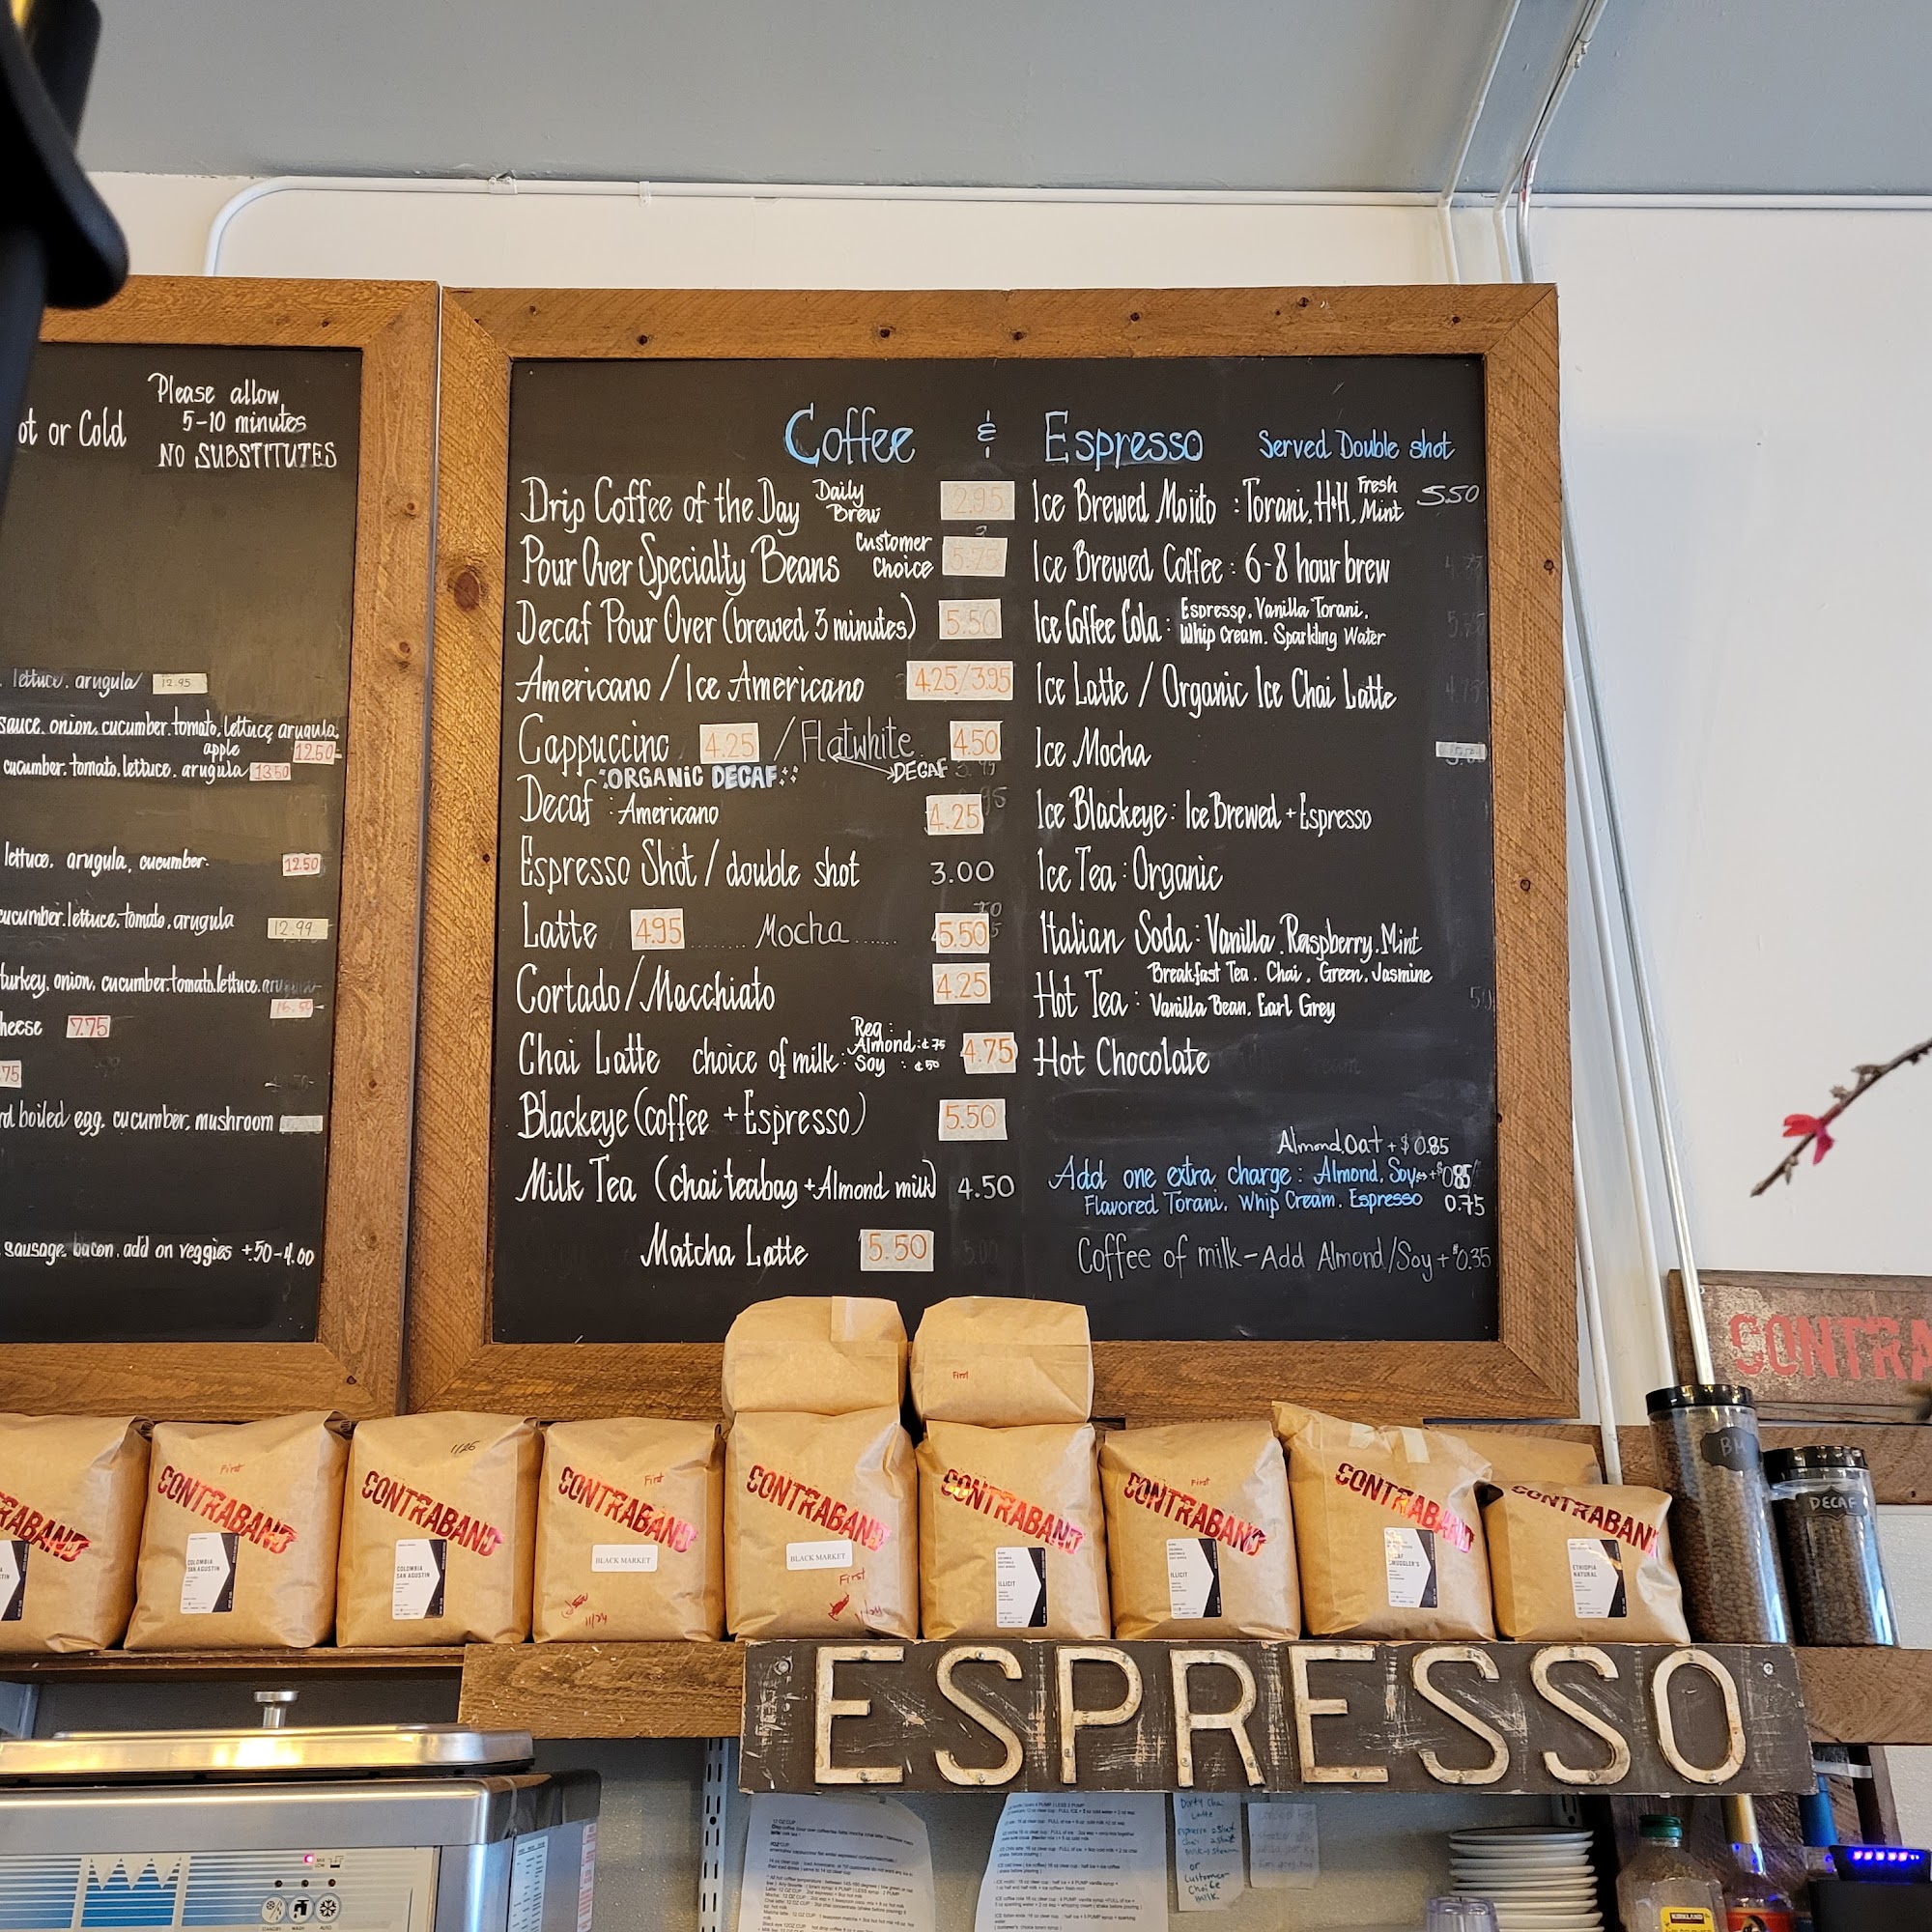 Please allow
5-10 minutes
NO SUBSTITUTES
ot or Cold
lettuce. arugula 12.95
sauce. onion. cucumber. tomato. lettuce, arugula,
apple 12.50
cucumber. tomato. lettuce. arugula 13.50
lettuce, arugula, cucumber. 12.50
cucumber. lettuce. tomato. arugula 12.99
turkey. onion, cucumber. tomato. lettuce. arugula
heese 7.75
.75
rd boiled egg. cucumber, mushroom
sausage. bacon. add on veggies +.50-4.00
Coffee & Espresso Served Double shot
Drip Coffee of the Day Daily Brew 2.95
Pour Over Specialty Beans Customer Choice 5.75
Decaf Pour Over (brewed 3 minutes) 5.50
Americano / Ice Americano 4.25/3.95
Cappuccino 4.25 / Flatwhite 4.50
ORGANIC DECAF DECAF
Decaf : Americano 4.25
Espresso Shot / double shot 3.00
Latte 4.95 ........ Mocha ...... 5.50
Cortado/Macchiato 4.25
Chai Latte choice of milk: Reg: Almond: ¢75 Soy : ¢50 4.75
Blackeye (coffee + Espresso) 5.50
Milk Tea (chai teabag + Almond milk) 4.50
Matcha Latte 5.50
Ice Brewed Mojito : Torani, H&H, Fresh Mint 5.50
Ice Brewed Coffee : 6-8 hour brew
Ice Coffee Cola : Espresso, Vanilla Torani,
Whip Cream. Sparkling Water
Ice Latte / Organic Ice Chai Latte
Ice Mocha
Ice Blackeye : Ice Brewed + Espresso
Ice Tea : Organic
Italian Soda : Vanilla. Raspberry. Mint
Hot Tea : Breakfast Tea. Chai. Green. Jasmine
Vanilla Bean. Earl Grey
Hot Chocolate
Almond.Oat + $0.85
Add one extra charge : Almond, Soy +$0.85
Flavored Torani, Whip Cream. Espresso 0.75
Coffee of milk - Add Almond/Soy + $0.35
CONTRA
First
CONTRABAND
First
CONTRABAND
COLOMBIA
SAN AGUSTIN
1/26
CONTRABAND
COLOMBIA
SAN AGUSTIN
First
CONTRABAND
BLACK MARKET
11/24
CONTRABAND
BLACK MARKET
First
CONTRABAND
ILLICIT
First
CONTRABAND
ILLICIT
CONTRABAND
SMUGGLER'S
CONTRABAN
ETHIOPIA
NATURAL
BM
DECAF
ESPRESSO
12 OZ CUP
Dirty Chai
Latte
or
Customer
Choice
milk
KIRKLAND